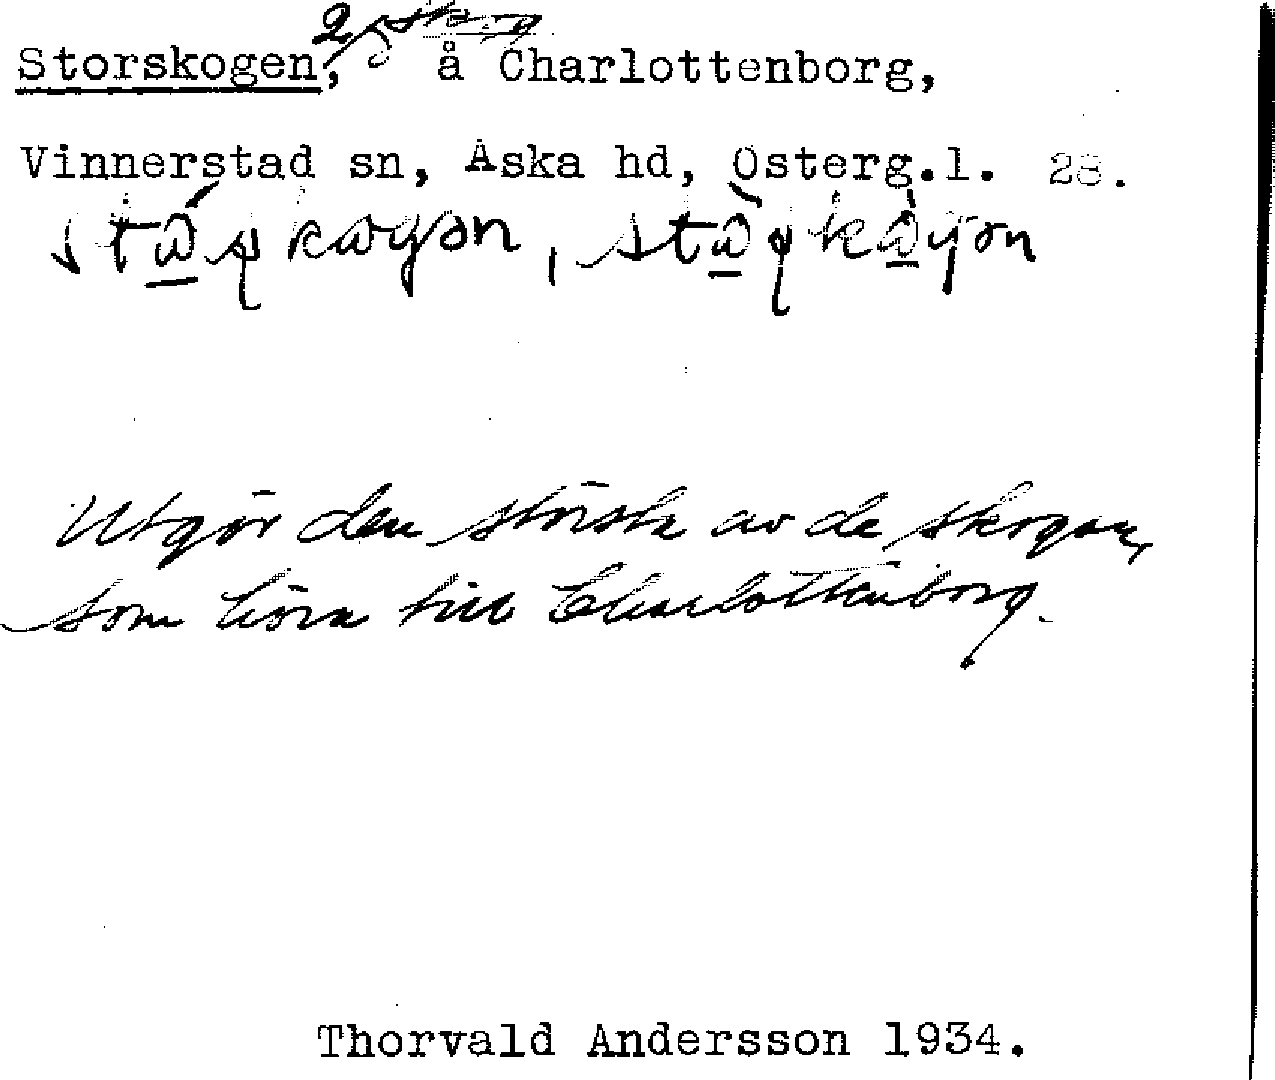 Storskogen, å Charlottenborg,
Vinnerstad sn, Aska hd, Österg.l. 28.
Utgör den största av de skogar,
som höra till Charlottenborg.
Thorvald Andersson 1934.